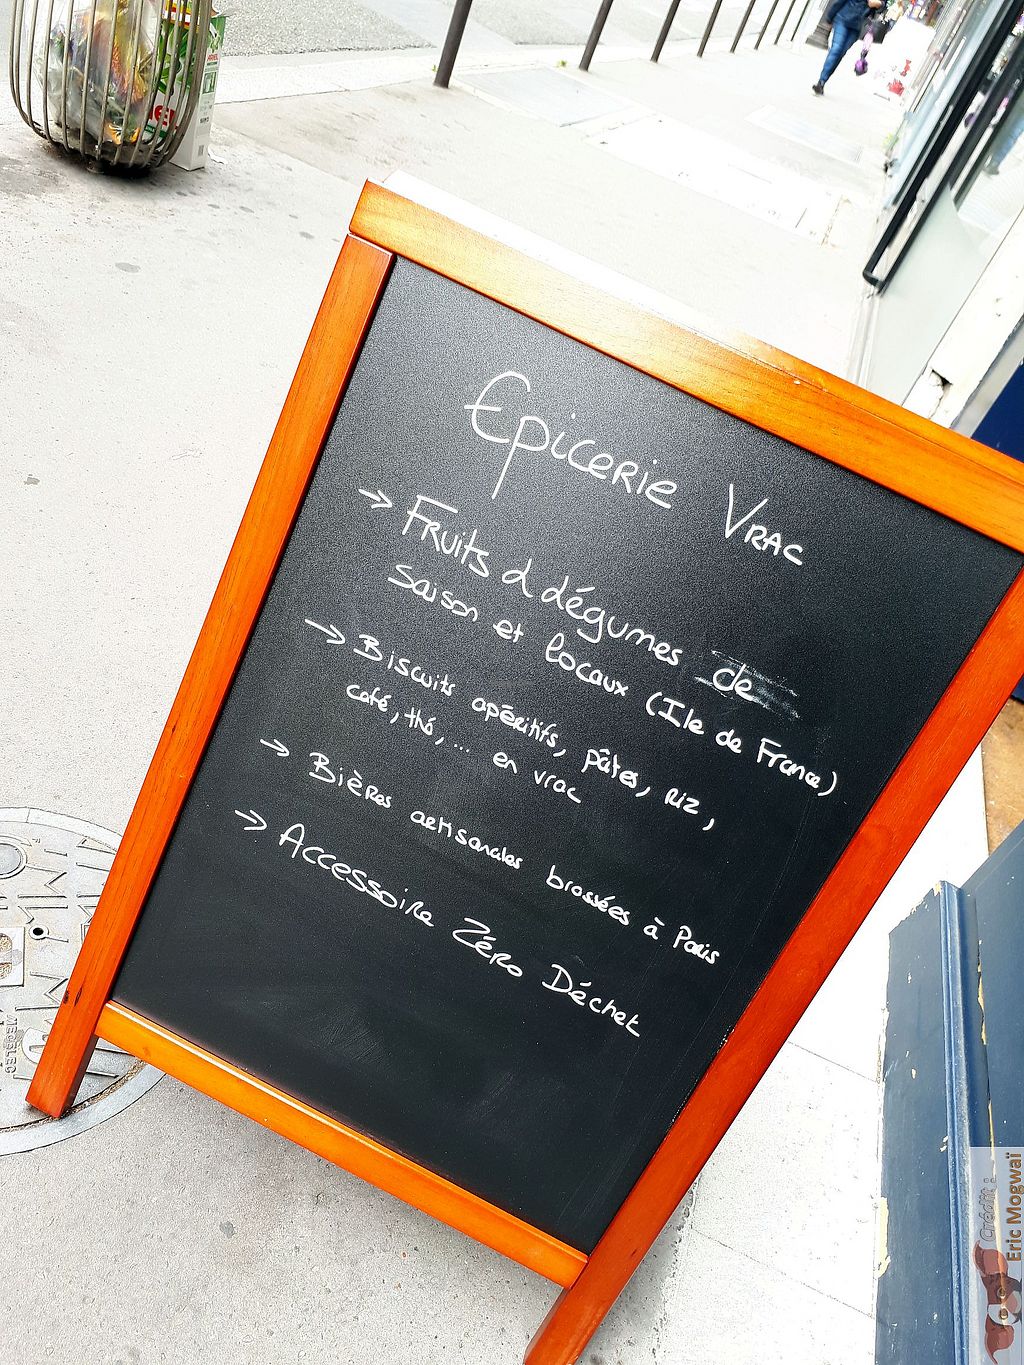 Epicerie Vrac
→ Fruits d dégumes de
saison et locaux (Ile de France)
→ Biscuits apéritifs, pâtes, riz,
café, thé, ... en vrac
→ Bières artisanales brassées à Paris
→ Accessoire Zéro Déchet
Crédit :
Eric Mogwaï